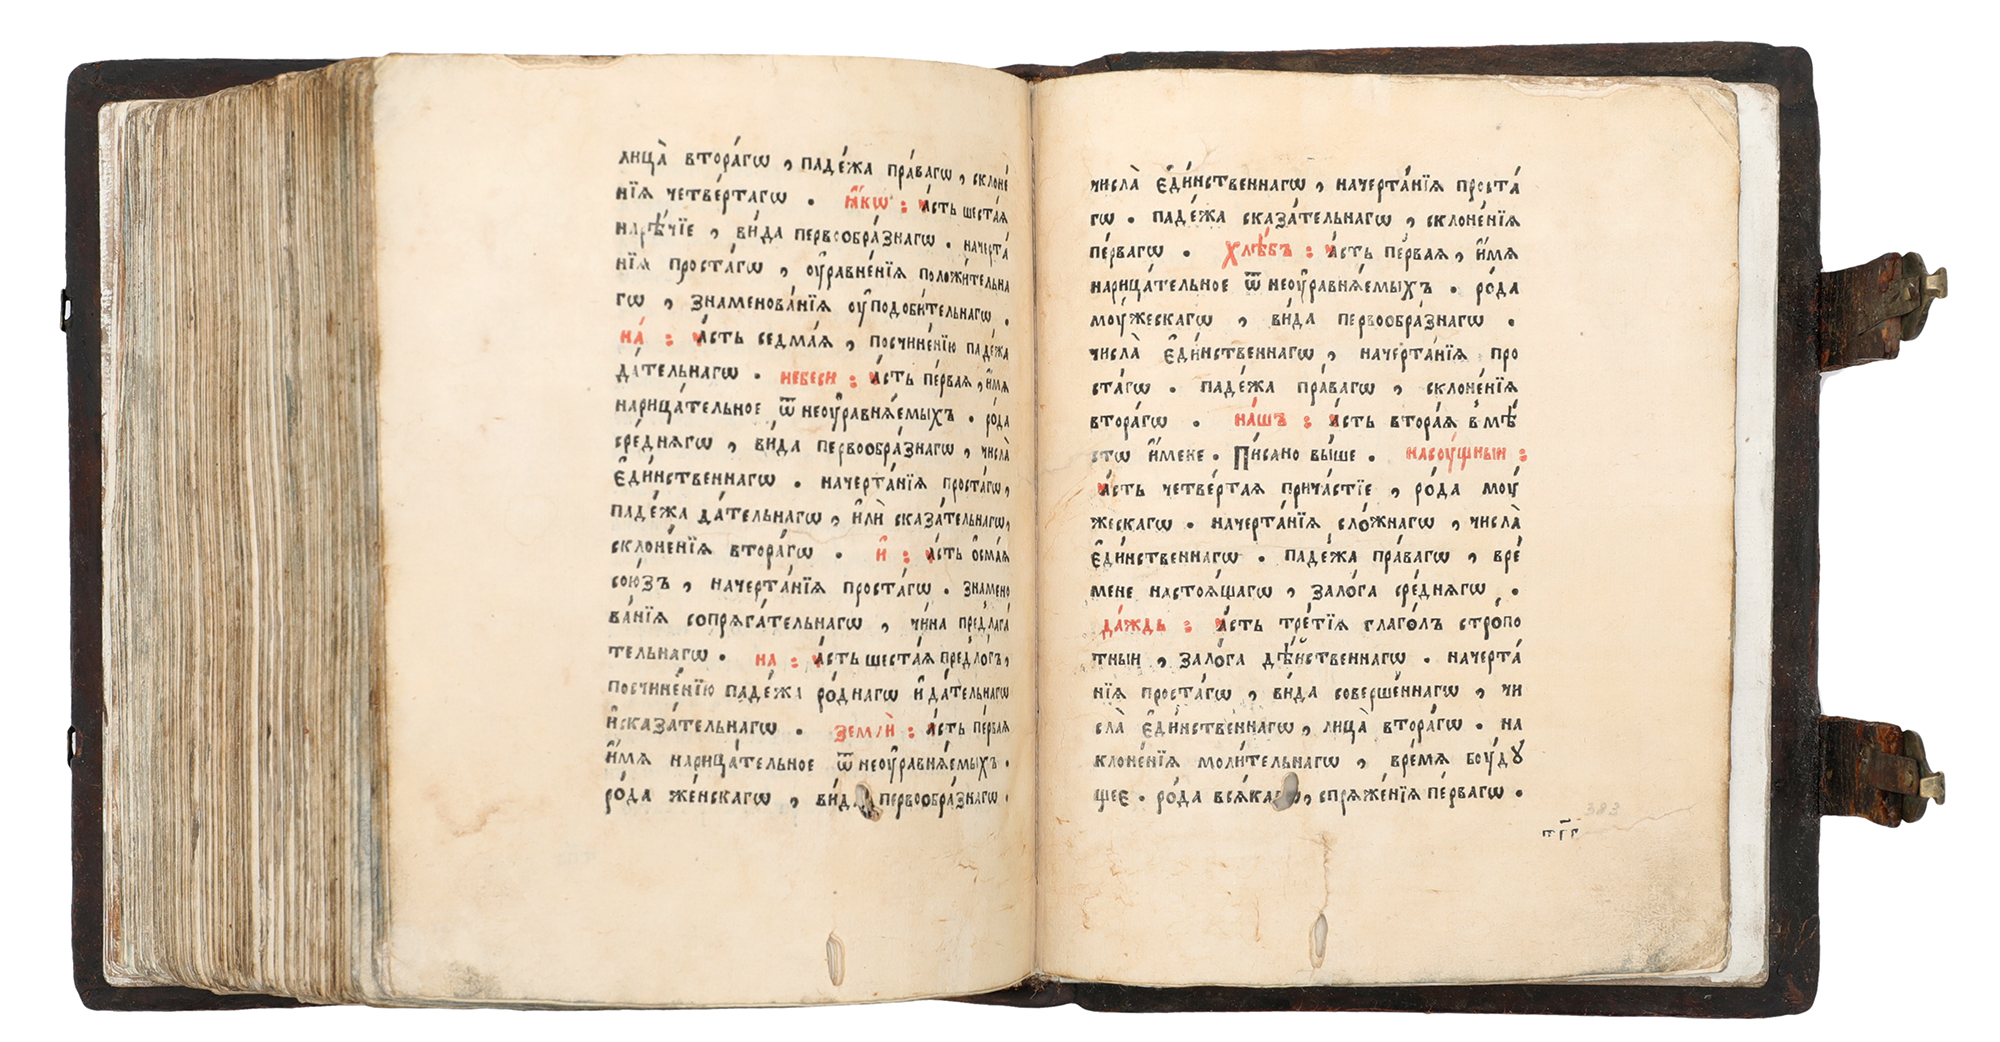 лица̀ втора́гѡ , паде́жа пра́вагѡ , склоне́
нїя четве́ртагѡ . ꙗ҆́кѡ : ча́сть шеста́я
нарѣ́чїе , ви́да первоѻбра́знагѡ . начерта́
нїя проста́гѡ , ᲂу҆равне́нїя положи́телна
гѡ , знаменова́нїя ᲂу҆подоби́тельнагѡ .
на́ : ча́сть седма́я , посчине́нїю паде́жа
да́тельнагѡ . небеси : ча́сть пе́рвая , и҆́мя
нарица́тельное ѿ неᲂуравня́емыхъ . ро́да
сре́днягѡ , ви́да первообра́знагѡ , числа̀
є҆ди́нственнагѡ . начерта́нїя проста́гѡ ,
паде́жа да́тельнагѡ , и҆лѝ сказа́тельнагѡ ,
склоне́нїя втора́гѡ . и҆ : ча́сть ѻ҆сма́я
сою́зъ , начерта́нїя проста́гѡ . знамено
ва́нїя сопряга́тельнагѡ , чи́на предлага́
тельнагѡ . на : ча́сть шеста́я предло́гъ ,
посчине́нїю паде́жа ро́днагѡ и҆ да́тельнагѡ
и҆сказа́тельнагѡ . землѝ : ча́сть пе́рвая
и҆́мя нарица́тельное ѿ неᲂуравня́емыхъ .
ро́да же́нскагѡ , ви́да первообра́знагѡ .
числа̀ є҆ди́нственнагѡ , начерта́нїя проста́
гѡ . паде́жа сказа́тельнагѡ , склоне́нїя
пе́рвагѡ . хлѣ́бъ : ча́сть пе́рвая , и҆́мя
нарица́тельное ѿ неᲂуравня́емыхъ . ро́да
моу́жескагѡ , ви́да первообра́знагѡ .
числа̀ є҆ди́нственнагѡ , начерта́нїя про
ста́гѡ . паде́жа пра́вагѡ , склоне́нїя
втора́гѡ . на́шъ : ча́сть втора́я вмѣ́
стѡ и҆́мене . Пи́сано вы́ше . насоу́щныи :
ча́сть четве́ртая прича́стїе , ро́да моу́
жескагѡ . начерта́нїя сло́жнагѡ , числа̀
є҆ди́нственнагѡ . паде́жа пра́вагѡ , вре́
мене настоя́щагѡ , зало́га сре́днягѡ , .
да́ждь : ча́сть тре́тїя глаго́лъ стро́по
тныи , зало́га дѣ́йственнагѡ . начерта́
нїя проста́гѡ , ви́да соверше́ннагѡ , чи
сла̀ є҆ди́нственнагѡ , лица̀ втора́гѡ . на
клоне́нїя моли́тельнагѡ , вре́мя боу́дꙋ
щее . ро́да вся́кагѡ , спряже́нїя пе́рвагѡ .
383
тпг